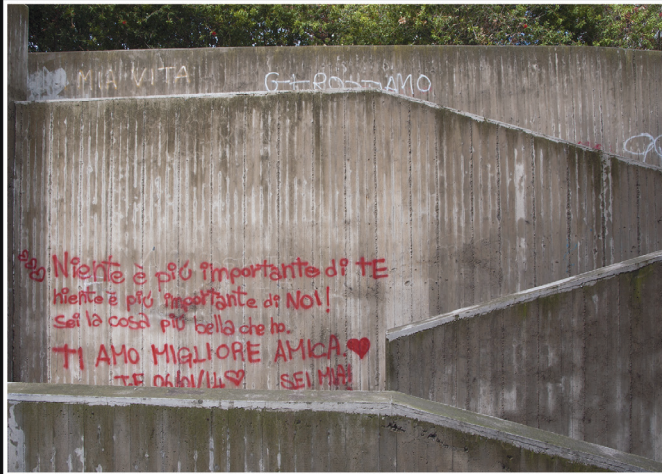 MIA VITA
Niente è più importante di TE
niente è più importante di NOI!
Sei la cosa più bella che ho.
TI AMO MIGLIORE AMICA.
TE 06/01/14 SEI MIA!